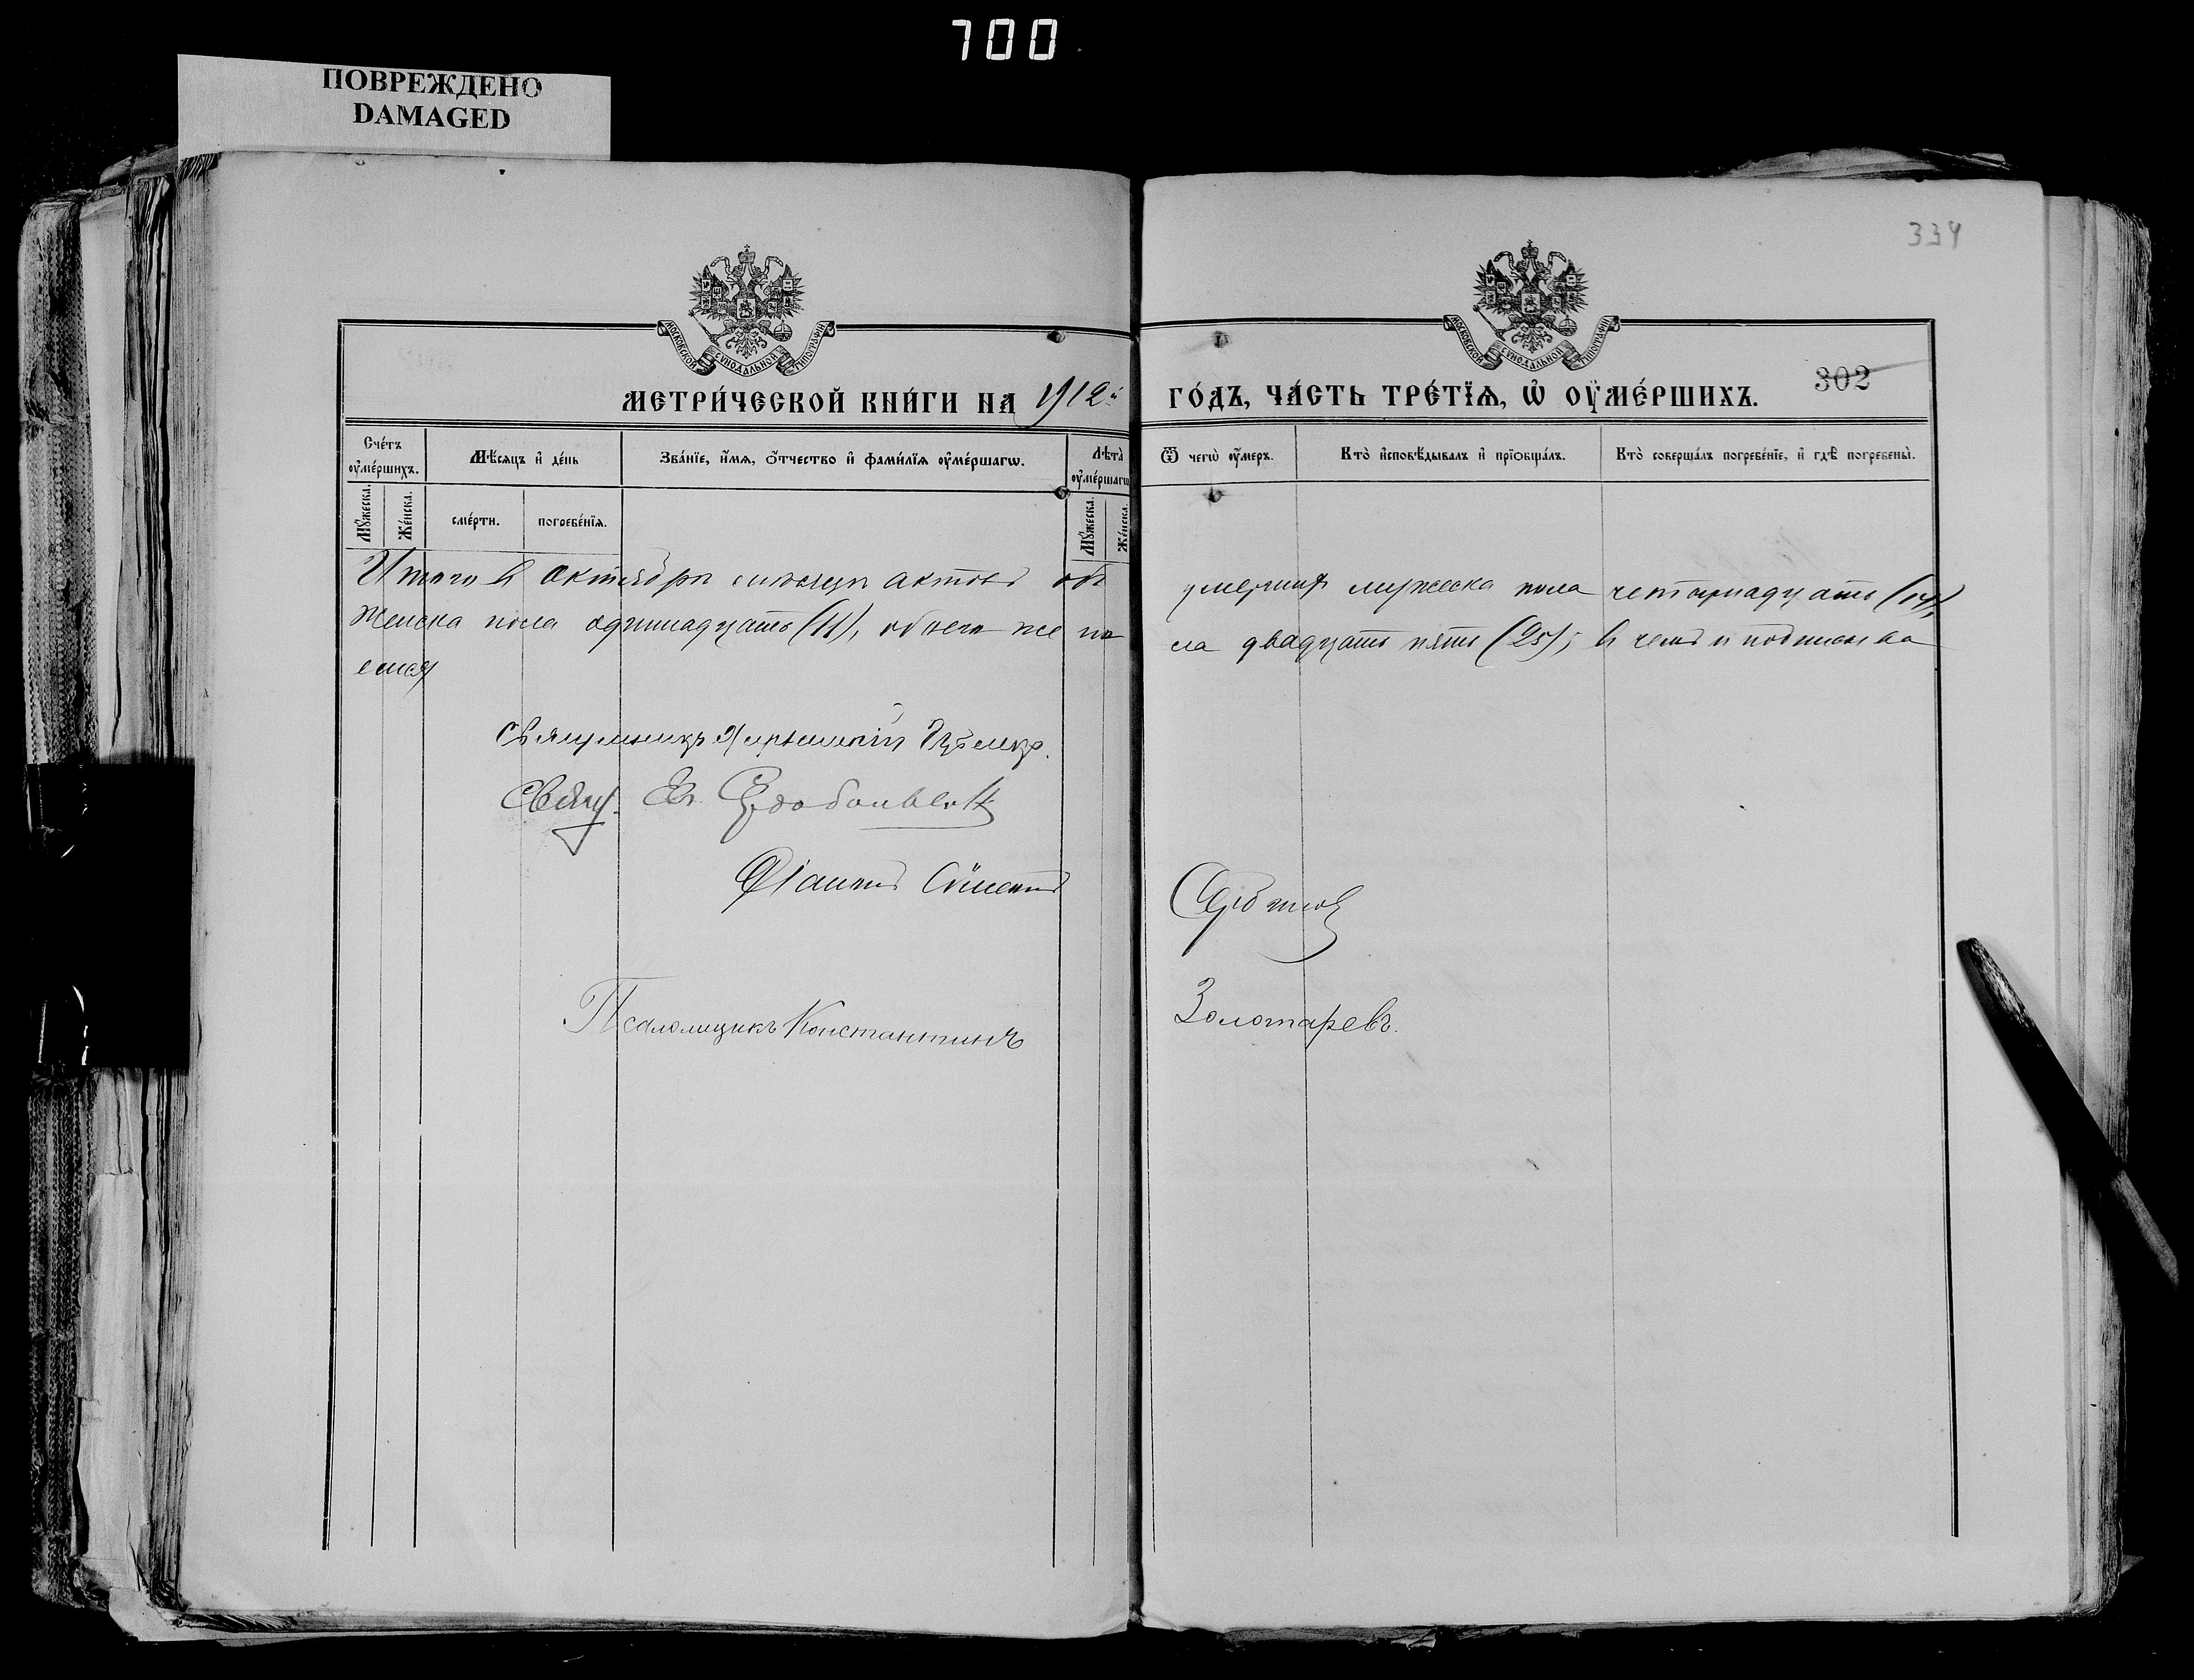 700
ПОВРЕЖДЕНО
DAMAGED
334
МОСКОВСКОЙ СѴНОДАЛЬНОЙ ТИПОГРАФІИ
МОСКОВСКОЙ СѴНОДАЛЬНОЙ ТИПОГРАФІИ
МЕТРИ́ЧЕСКОЙ КНИ́ГИ НА 1912й ГО́ДЪ, ЧА́СТЬ ТРЕ́ТЇѦ, Ѡ҆ ОУ҆МЕ́РШИХЪ.
302
Сче́тъ оу҆ме́ршихъ.
Мѣ́сяцъ и҆ де́нь
Зва́нїе, и҆́мѧ, ѻ҆́тчество и҆ фами́лїѧ оу҆ме́ршагѡ.
Лѣ́та оу҆ме́ршагѡ
Ѿ чегѡ̀ оу҆́меръ.
Кто̀ и҆сповѣ́дывалъ и҆ прїѡбща́лъ.
Кто̀ соверша́лъ погребе́нїе, и҆ гдѣ̀ погребены̀.
Мꙋ́жеска.
Же́нска.
сме́рти.
погребе́нїѧ.
Мꙋ́жеска.
Же́нска.
Итого в октябрѣ мѣсяцѣ актовъ объ умершихъ мужеска пола четырнадцать (14),
женска пола одиннадцать (11), обоего же пола двадцать пять (25); в чемъ и подписыва
емся
Священникъ
Свящ. Ев.
Діаконъ Симеонъ
Псаломщикъ Константинъ Золотаревъ.